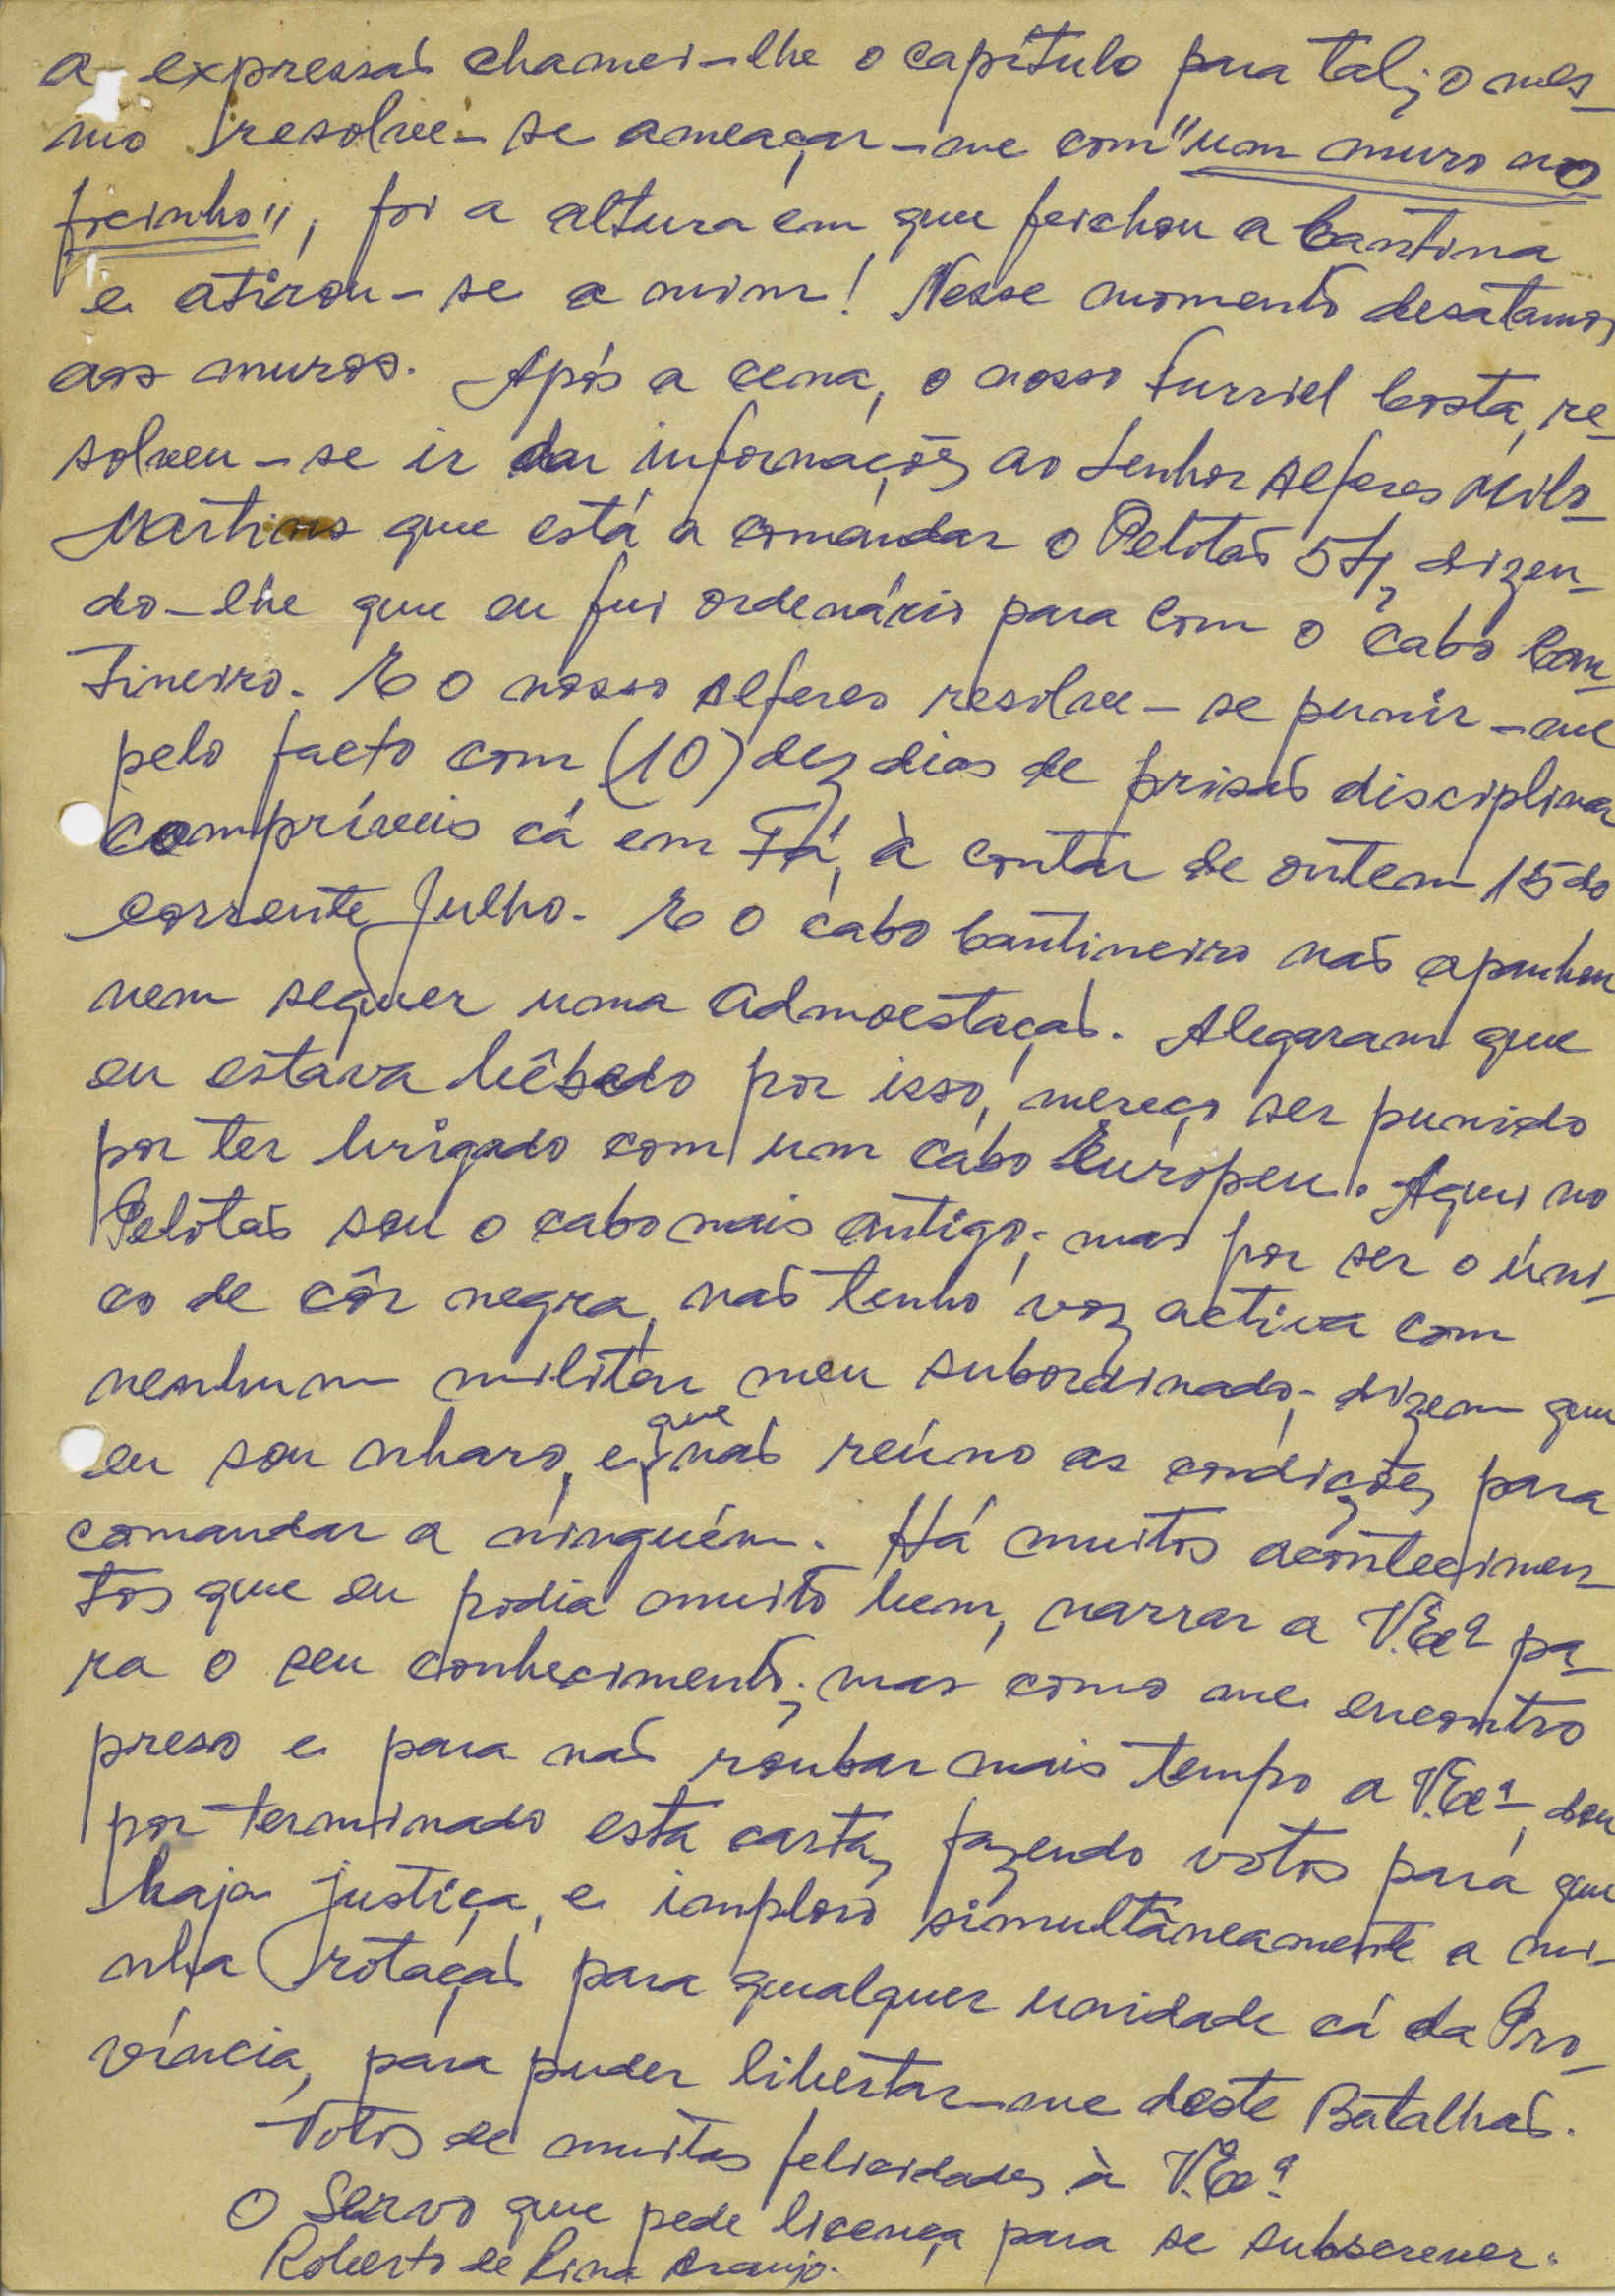 a expressaõ chamei-lhe o capítulo para tal; o mes-
mo resolve-se ameaçar-me com "um muro no
focinho", foi a altura em que feichou a Cantina
e atirou-se a mim! Nesse momento desatamos
aos muros. Após a cena, o nosso Furriel Costa, re-
solveu-se ir dar informações ao Senhor Alferes Milo
Martins que está a comandar o Pelotaõ 54, dizen-
do-lhe que eu fui ordenário para com o cabo Can-
tineiro. E o nosso Alferes resolve-se punir-me
pelo facto com (10) dez dias de prisaõ disciplinar
compríveis cá em Fá, à contar de ontem 15 do
corrente Julho. E o cabo Cantineiro naõ apanhou
nem sequer uma admoestaçaõ. Alegaram que
eu estava bêbedo por isso, mereço ser punido
por ter brigado com um cabo Európeu. Aqui no
Pelotaõ sou o cabo mais antigo; mas por ser o úni-
co de côr negra, naõ tenho voz activa com
nenhum militar meu subordinado; dizem que
eu sou nharo, e que naõ reúno as condições para
comandar a ninguém. Há muitos acontecimen-
tos que eu podia muito bem, narrar a V.Exª pa-
ra o seu conhecimento; mas como me encontro
preso e para naõ roubar mais tempo a V.Exª, dou
por terminado esta carta, fazendo votos para que
haja justiça, e imploro simultâneamente a mi-
nha rotaçaõ para qualquer unidade cá da Pro-
víncia, para puder libertar-me deste Batalhaõ.
Votos de muitas felicidades à V.Exª
O Servo que pede licença para se subscrever.
Roberto de Lima Araujo.